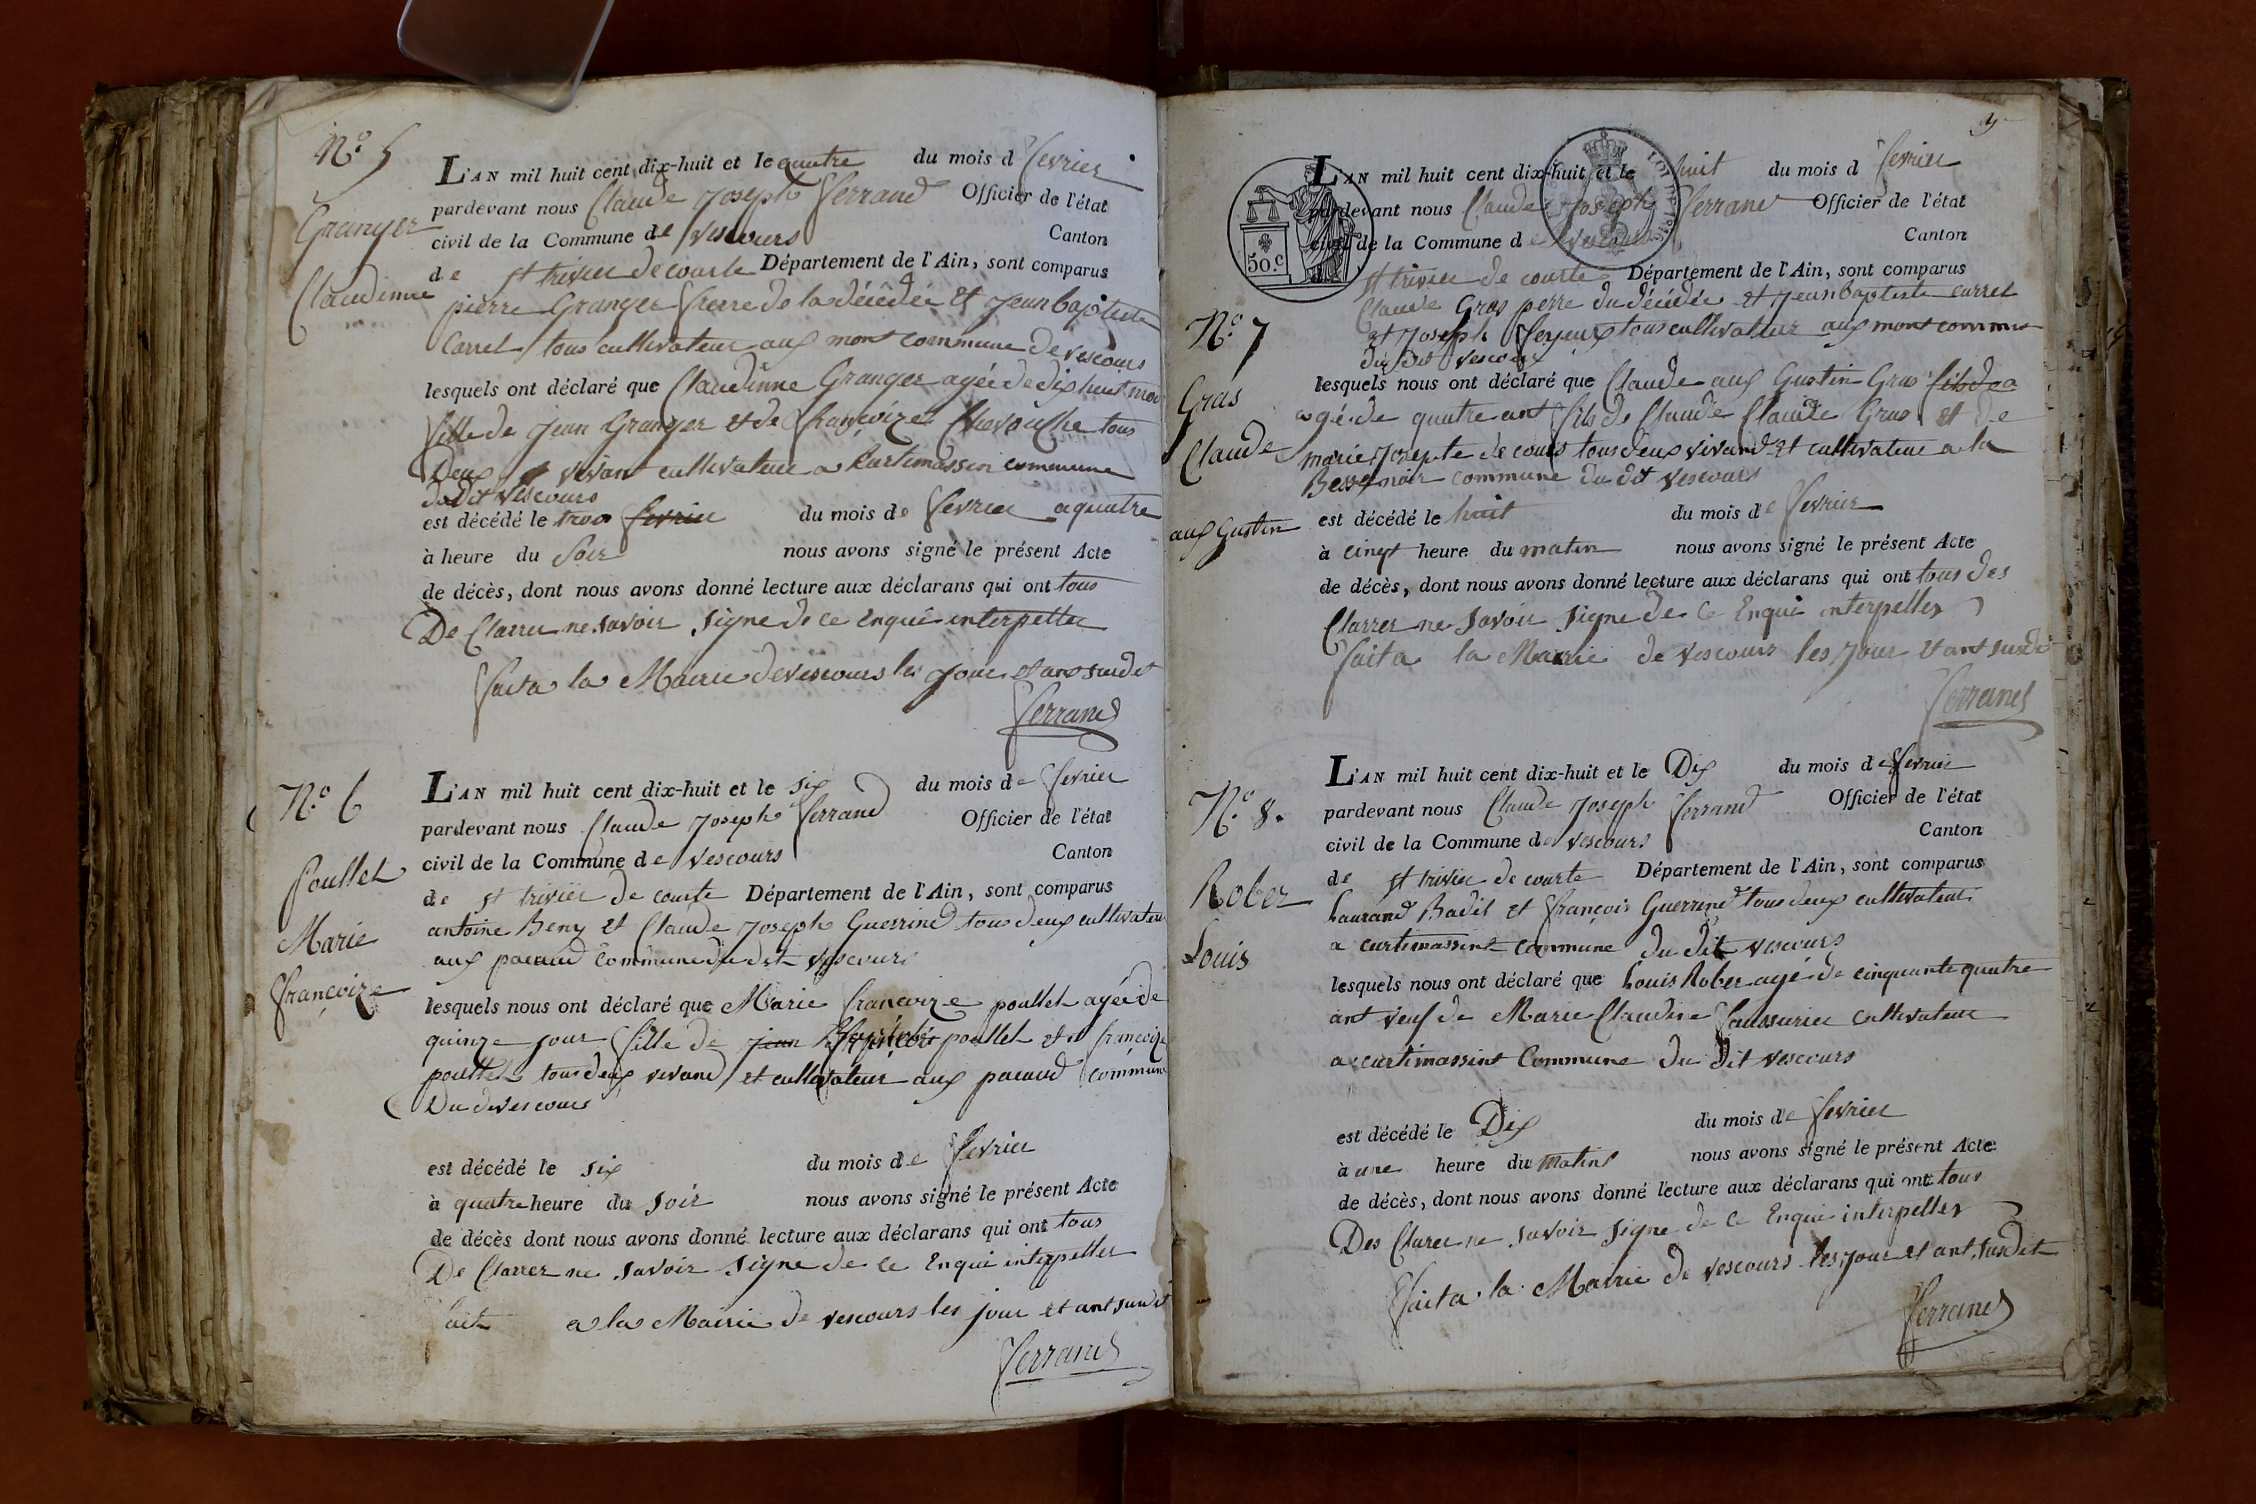 N.o 5
Granger
Claudinne
L'AN mil huit cent dix-huit et le quatre du mois d fevrier
pardevant nous Claude Joseph ferrand Officier de l'état
civil de la Commune de vescours Canton
de st trivier de courte Département de l'Ain, sont comparus
pierre Granger frere de la décédée et Jean baptiste
Carrel tous cultivateur aux mont commune de vescours
lesquels ont déclaré que Claudinne Granger agée de dix huit moi
fille de Jean Granger et de françoize Chevouche tous
Deux vivant cultivateur a Curtimassin commune
du Dit vescours
est décédé le trois fevrier du mois de fevrier a quatre
à heure du soir nous avons signé le présent Acte
de décès, dont nous avons donné lecture aux déclarans qui ont tous
De Clarrer ne savoir signe de ce Enqui interpeller
fait a la Mairie de vescours les jour et ans susdit
ferrand
N.o 6
poullet
Marie
françoize
L'AN mil huit cent dix-huit et le six du mois de fevrier
pardevant nous Claude Joseph ferrand Officier de l'état
civil de la Commune de vescours Canton
de st trivier de courte Département de l'Ain, sont comparus
antoine Beny et Claude Joseph Guerrind tous deux cultivateu
aux pacaud commune du dit vescours
lesquels nous ont déclaré que Marie françoize poullet agée de
quinze jour fille de jean poullet et d françoize
poullet tous deux vivand et cultivateur aux pacaud commune
Du devescours
est décédé le six du mois de fevrier
à quatre heure du soir nous avons signé le présent Acte
de décès dont nous avons donné lecture aux déclarans qui ont tous
De Clarrer ne savoir signe de ce Enqui interpeller
fait a la Mairie de vescours les jour et ant susdit
ferrand
50.c
N.o 7
Gras
Claude
aux Gustin
L'AN mil huit cent dix-huit et le huit du mois d fevrier
pardevant nous Claude Joseph ferrand Officier de l'état
civil de la Commune de vescours Canton
de st trivier de courte Département de l'Ain, sont comparus
Claude Gras perre du décédée et Jean baptiste carrel
et Joseph feyeux tous cultivateur aux mont commune
du dit vescours
lesquels nous ont déclaré que Claude aux Gustin Gras fils de a
agé de quatre ant fils de Claude Claude Gras et de
marie Josepte de cours tous deux vivand et cultivateur a la
Besse noir commune du dit vescours
est décédé le huit du mois de fevrier
à cinqt heure du matin nous avons signé le présent Acte
de décès, dont nous avons donné lecture aux déclarans qui ont tous des
Clarrer ne savoir signe de ce Enqui interpeller
fait a la Mairie de vescours les jour et ant susdit
ferrand
N.o 8.
Rober
Louis
L'AN mil huit cent dix-huit et le Dix du mois de fevrier
pardevant nous Claude Joseph ferrand Officier de l'état
civil de la Commune de vescours Canton
de st trivier de courte Département de l'Ain, sont comparus
Laurand Badit et françois Guerrind tous deux cultivateur
a curtimassint commune du dit vescours
lesquels nous ont déclaré que Louis Rober agé de cinquante quatre
ant veuf de Marie Claudine faussurier cultivateur
a curtimassint Commune du Dit vescours
est décédé le Dix du mois de fevrier
à une heure du matint nous avons signé le présent Acte
de décès, dont nous avons donné lecture aux déclarans qui ont tous
Des Clarer ne savoir signe de ce Enqui interpeller
fait a la Mairie de vescours les jour et ant susdit
ferrand